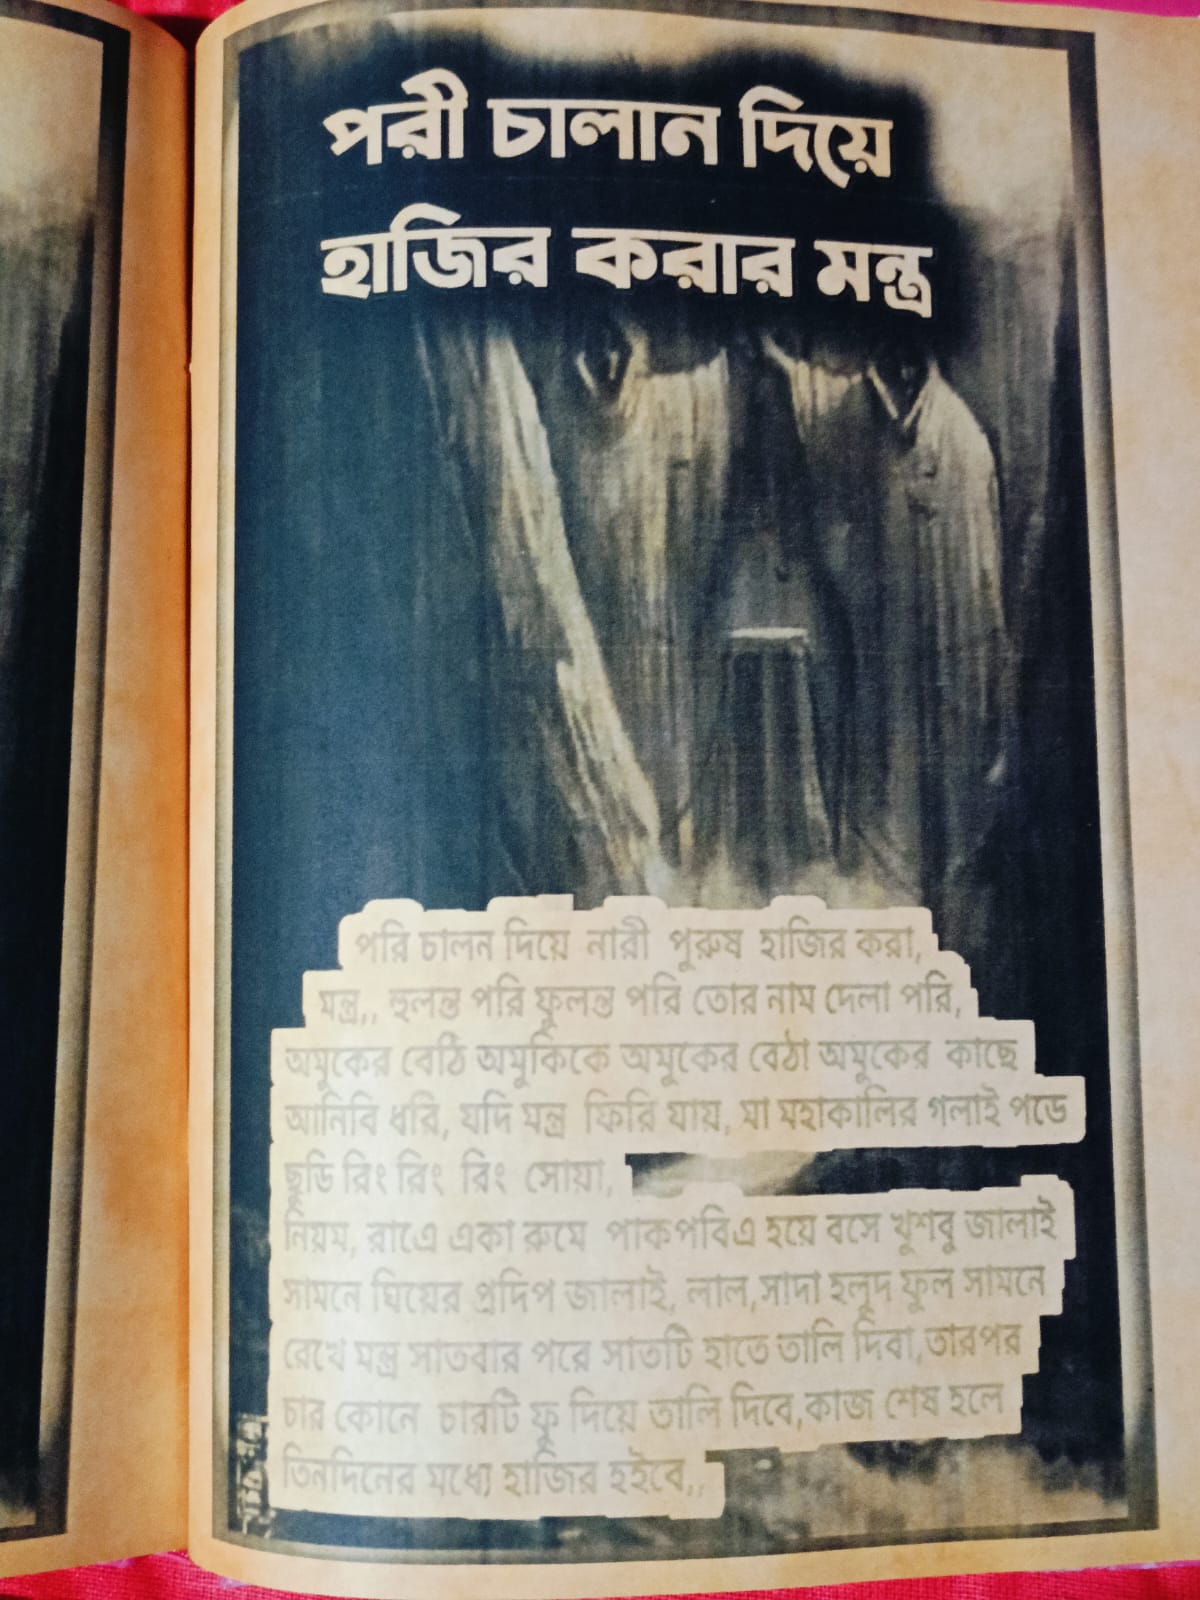 পরী চালান দিয়ে
হাজির করার মন্ত্র
পরি চালন দিয়ে নারী পুরুষ হাজির করা,
মন্ত্র,, হুলন্ত পরি ফুলন্ত পরি তোর নাম দেলা পরি,
অমুকের বেঠি অমুকিকে অমুকের বেঠা অমুকের কাছে
আনিবি ধরি, যদি মন্ত্র ফিরি যায়, মা মহাকালির গলাই পডে
ছুডি রিং রিং রিং সোয়া,
নিয়ম, রাএে একা রুমে পাকপবিএ হয়ে বসে খুশবু জালাই
সামনে ঘিয়ের প্রদিপ জালাই, লাল,সাদা হলুদ ফুল সামনে
রেখে মন্ত্র সাতবার পরে সাতটি হাতে তালি দিবা,তারপর
চার কোনে চারটি ফু দিয়ে তালি দিবে,কাজ শেষ হলে
তিনদিনের মধ্যে হাজির হইবে,,